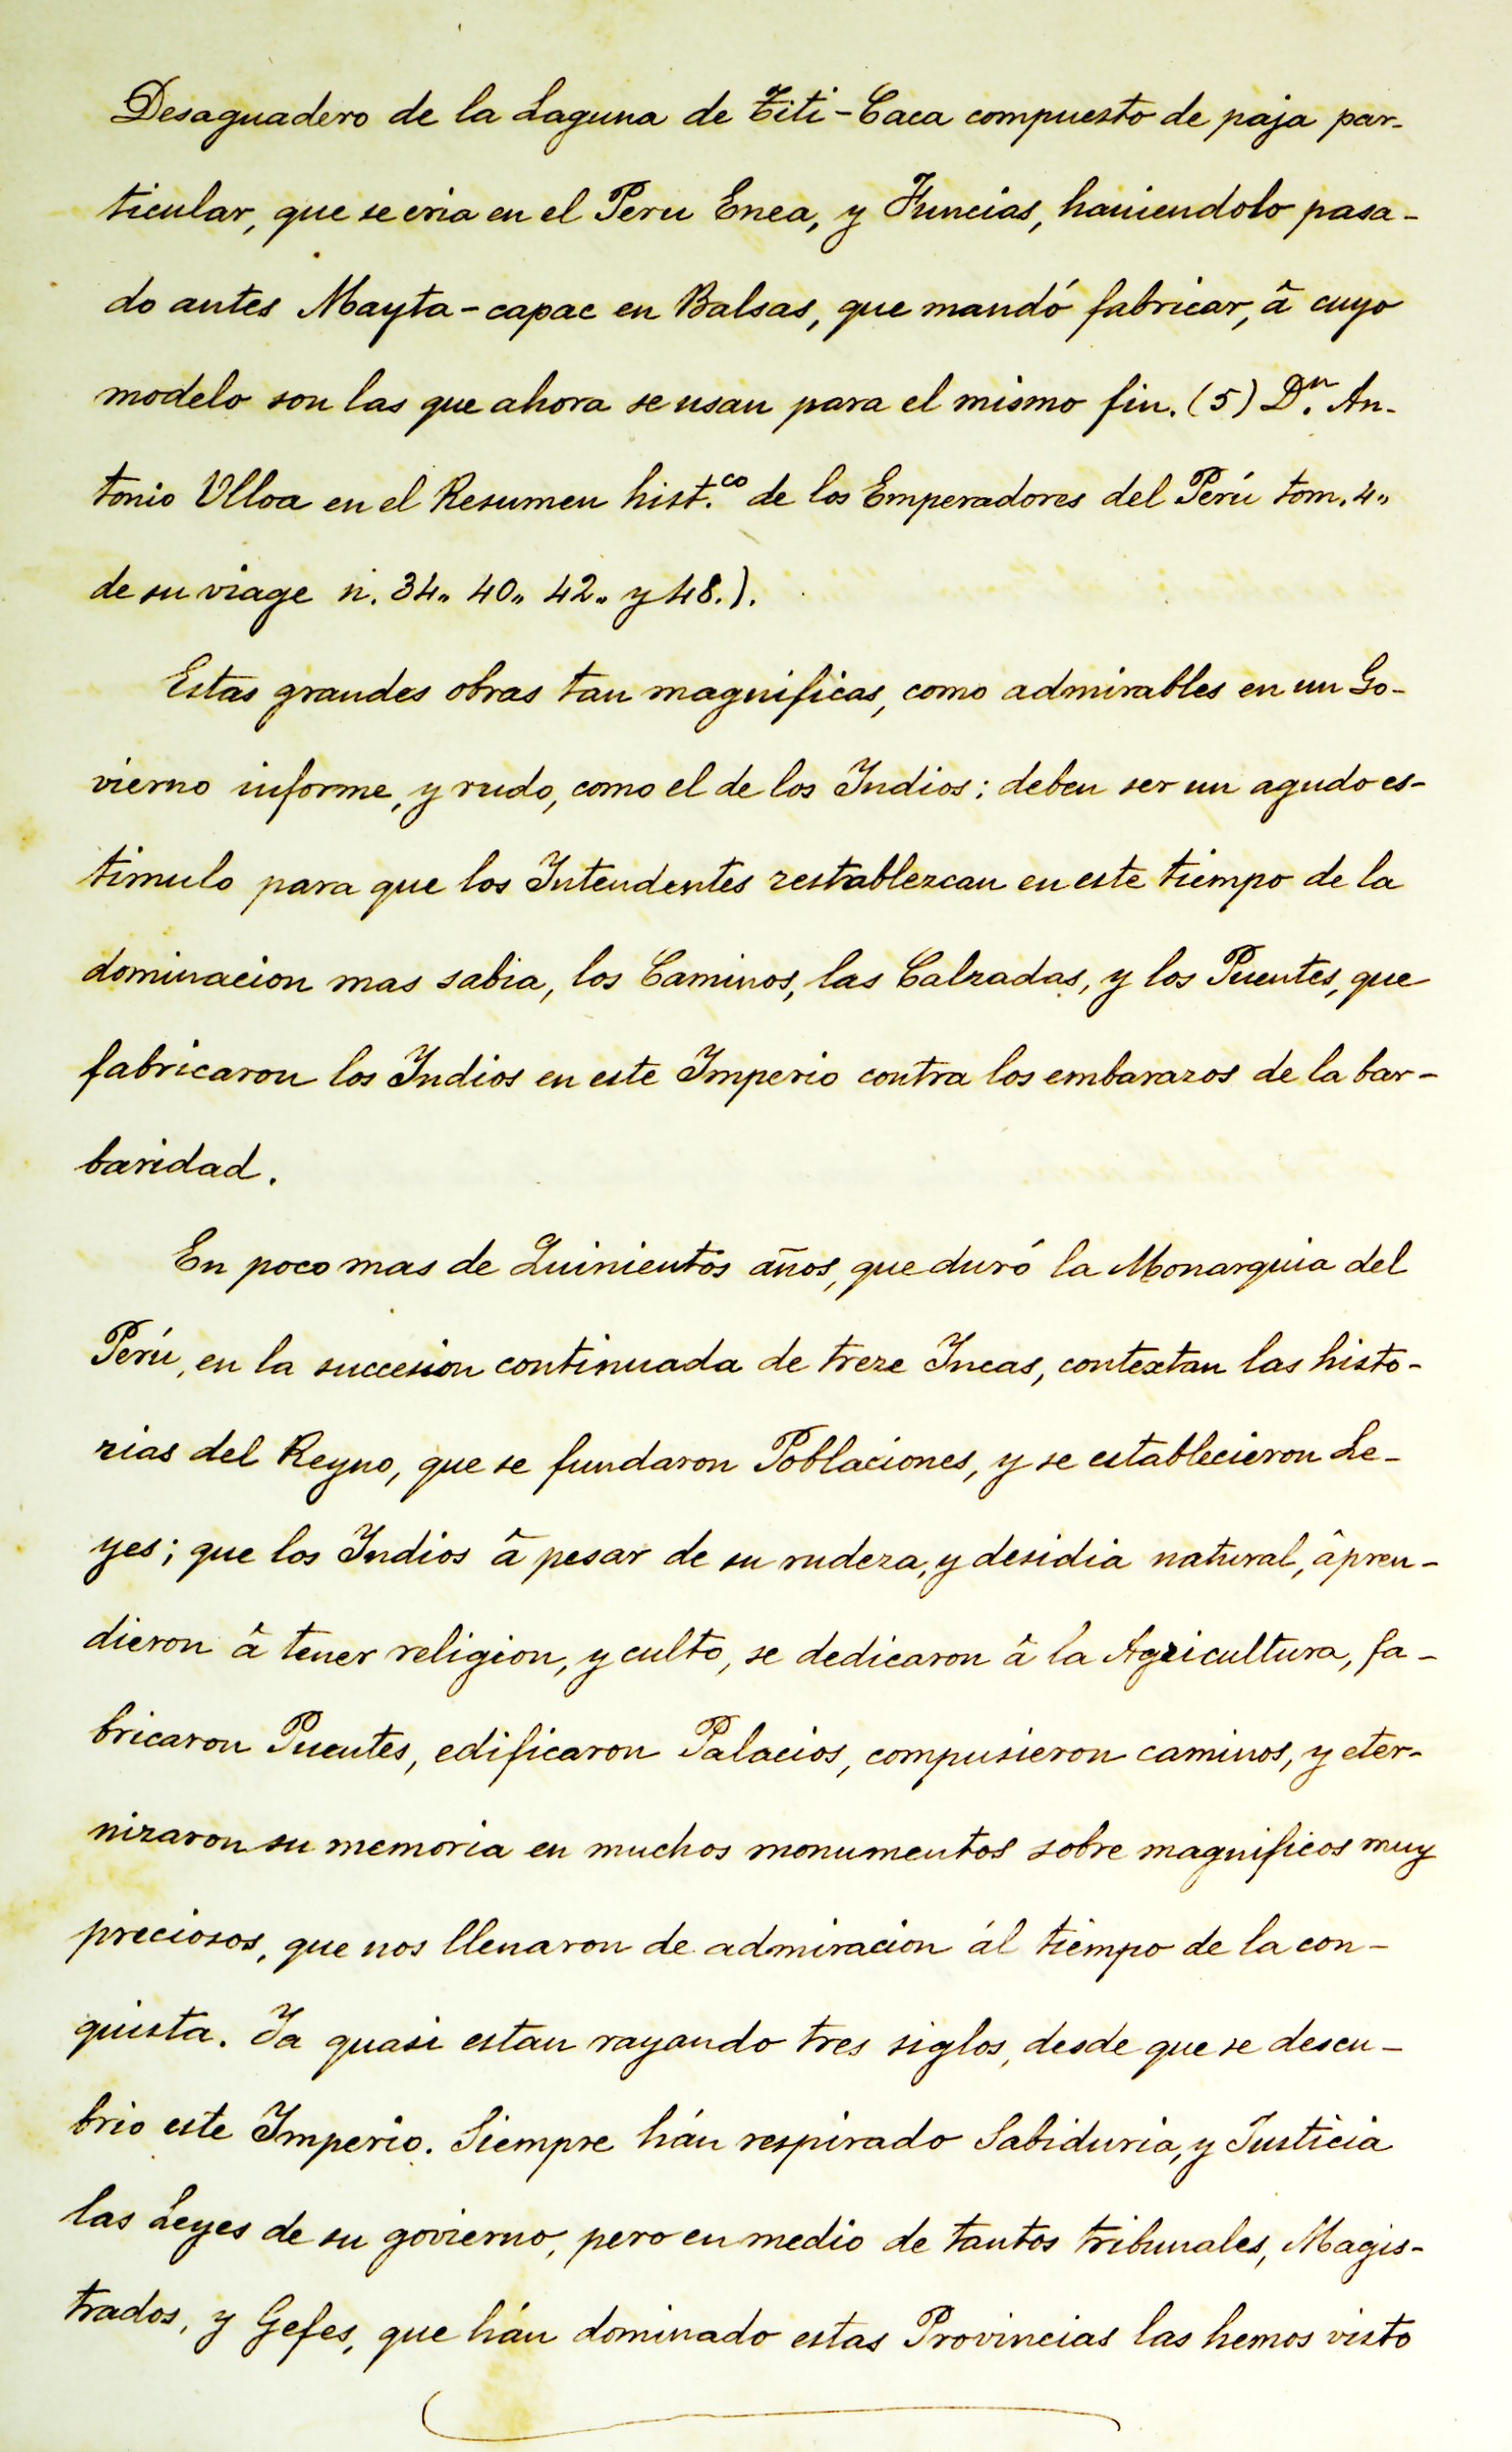 Desaguadero de la Laguna de Titi-Caca compuesto de paja par-
ticular, que se cria en el Peru Enea, y Juncias, haviendolo pasa-
do antes Mayta-capac en Balsas, que mandó fabricar, â cuyo
modelo son las que ahora se usan para el mismo fin. (5) Dn. An-
tonio Ulloa en el Resumen hist.co de los Emperadores del Perú tom. 4„
de su viage n. 34„ 40„ 42„ y 48.).
Estas grandes obras tan magnificas, como admirables en un Go-
vierno informe, y rudo, como el de los Indios: deben ser un agudo es-
timulo para que los Intendentes restablezcan en este tiempo de la
dominacion mas sabia, los Caminos, las Calzadas, y los Puentes, que
fabricaron los Indios en este Imperio contra los embarazos de la bar-
baridad.
En poco mas de Quinientos años, que duró la Monarquia del
Perú, en la succesion continuada de treze Incas, contextan las histo-
rias del Reyno, que se fundaron Poblaciones, y se establecieron Le-
yes; que los Indios â pesar de su rudeza, y desidia natural, âpren-
dieron â tener religion, y culto, se dedicaron â la Agricultura, fa-
bricaron Puentes, edificaron Palacios, compusieron caminos, y eter-
nizaron su memoria en muchos monumentos sobre magnificos muy
preciosos, que nos llenaron de admiracion ál tiempo de la con-
quista. Ya quasi estan rayando tres siglos, desde que se descu-
brio este Imperio. Siempre hán respirado Sabiduria, y Justicia
las Leyes de su govierno, pero en medio de tantos tribunales, Magis-
trados, y Gefes, que hán dominado estas Provincias las hemos visto